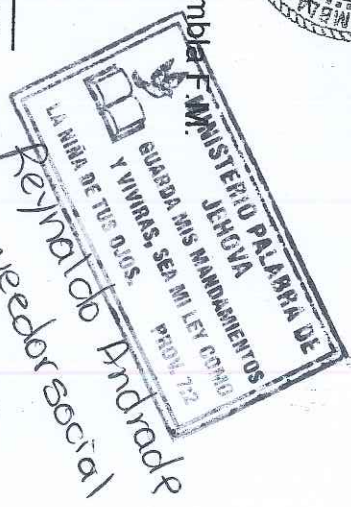 mbla F.M.
MINISTERIO PALABRA DE
JEHOVA
GUARDA MIS MANDAMIENTOS
Y VIVIRAS, SEA MI LEY COMO
LA NIÑA DE TUS OJOS.
PROV. 7:2
Reynaldo Andrade
eedor social